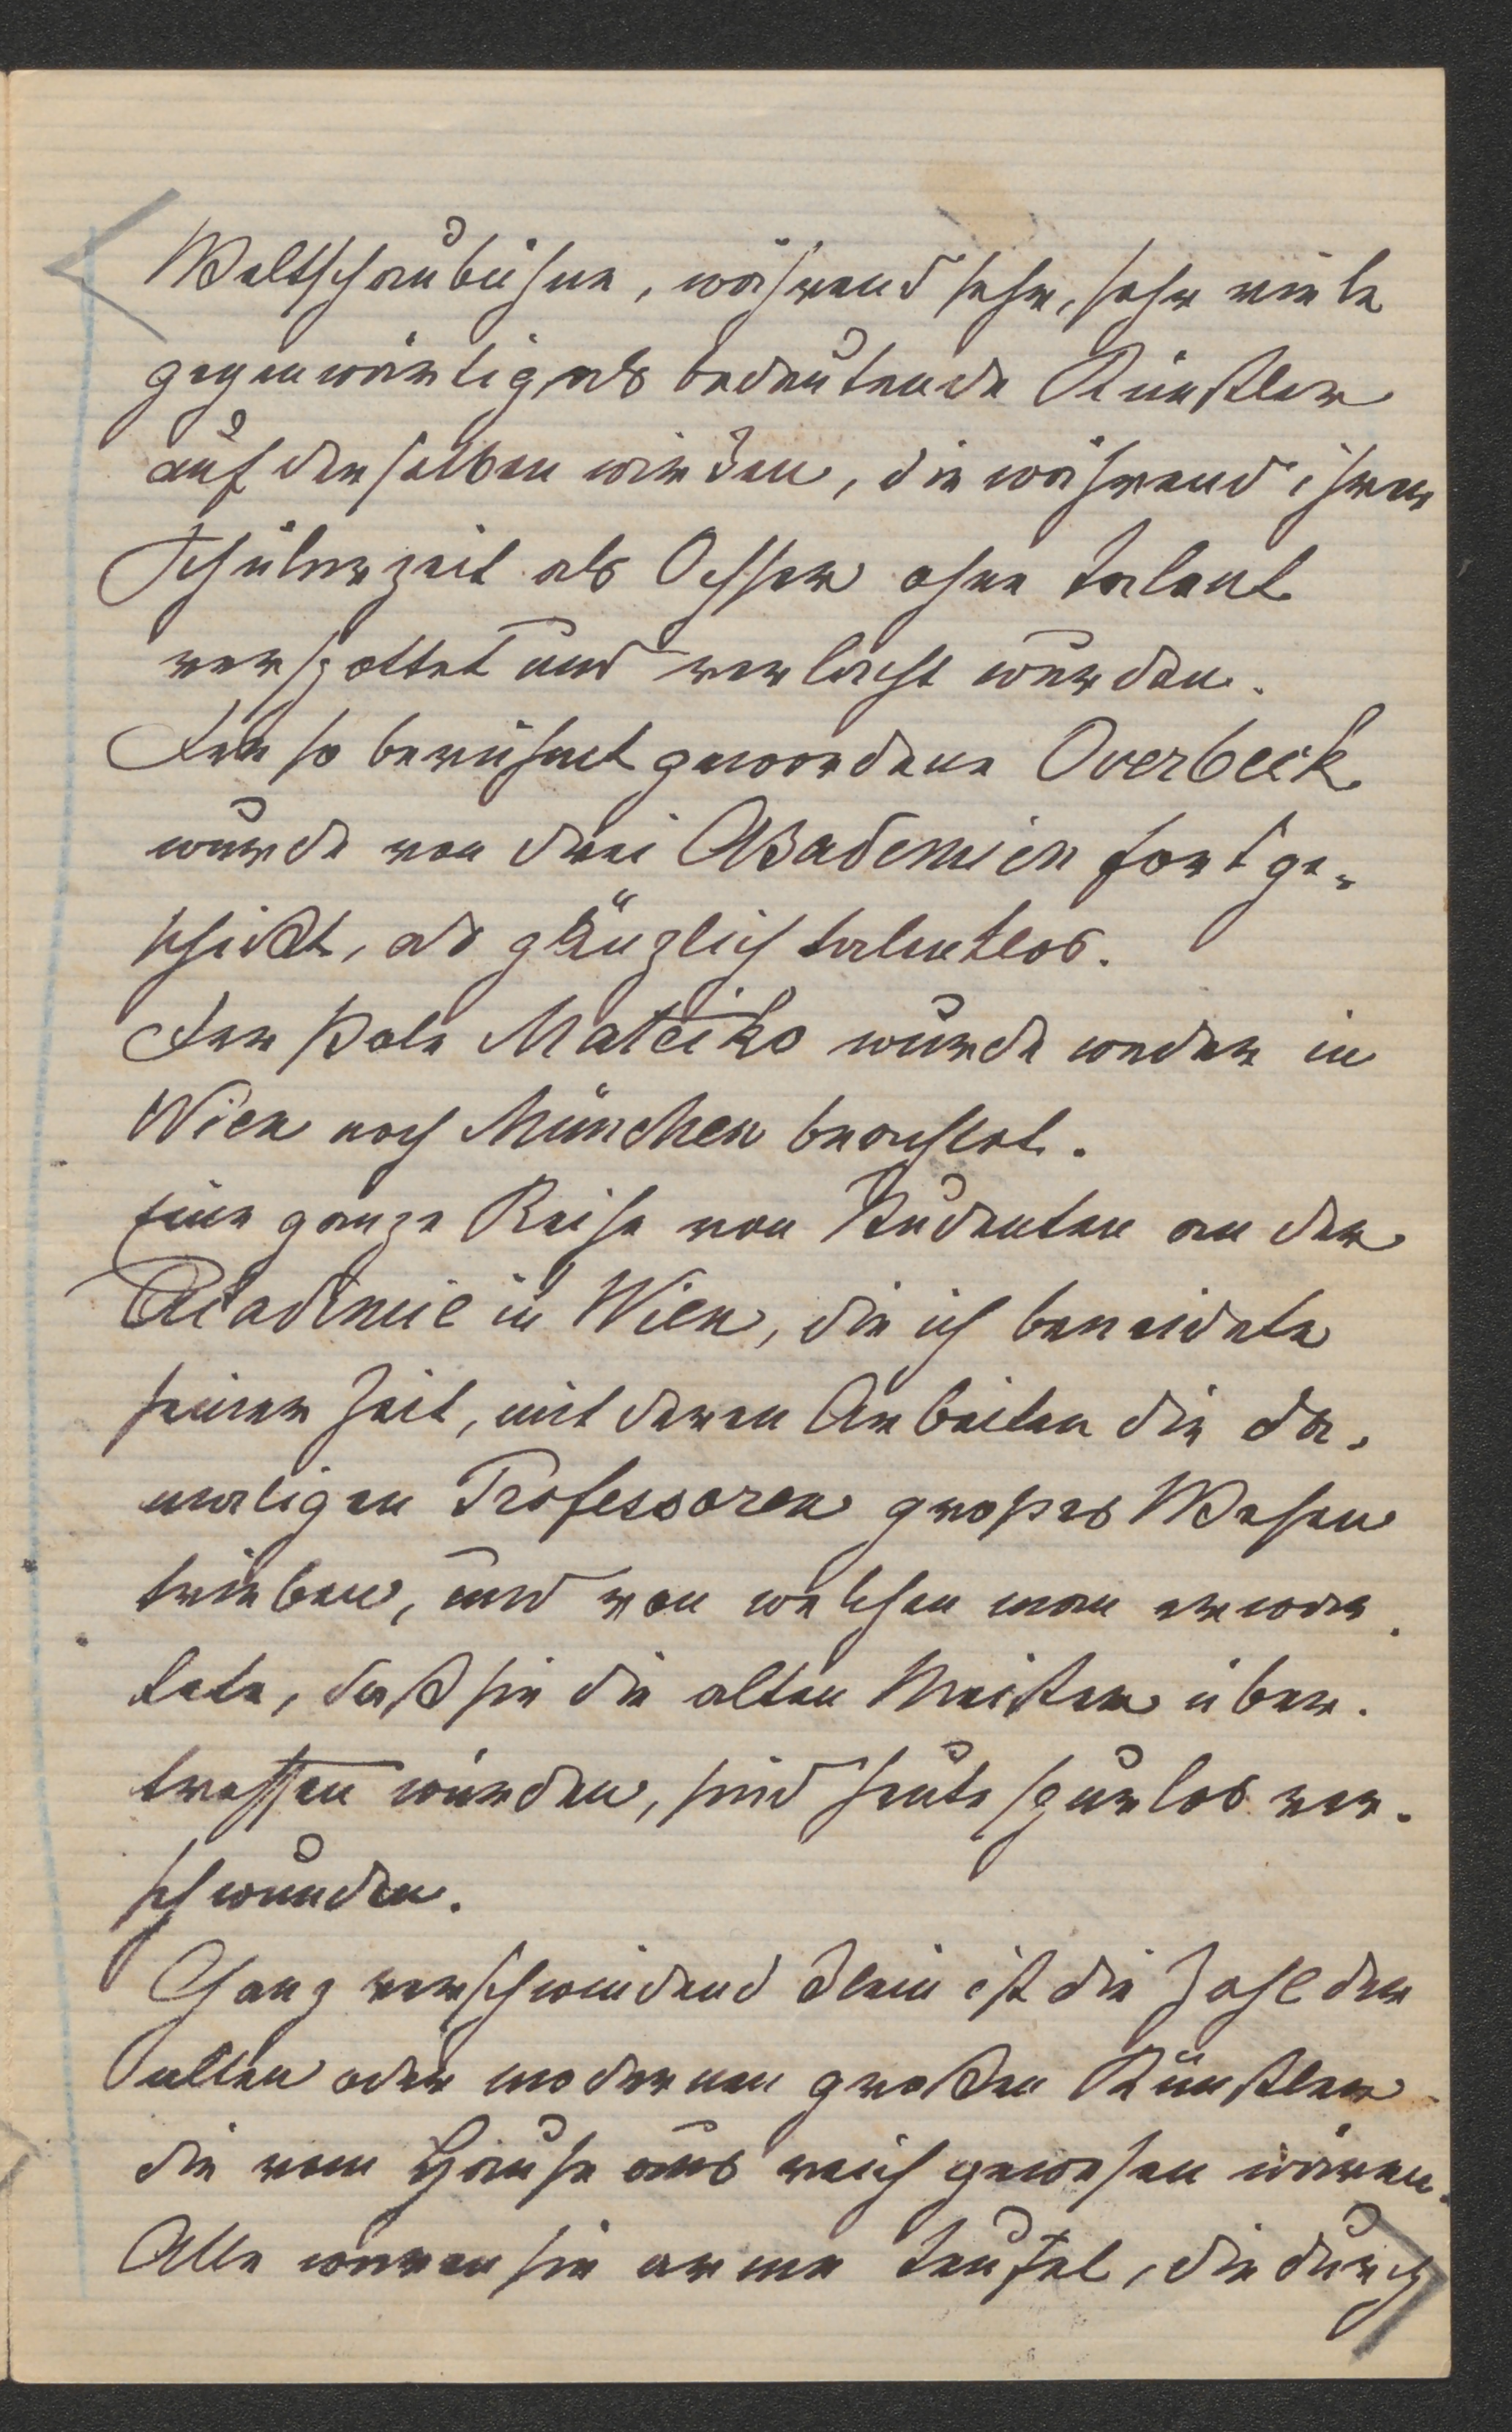 Weltschaubühne, während sehr, sehr viele
gegenwärtig als bedeutende Künstler
auf derselben wirken, die während ihrer
Schülerzeit als Ochsen ohne Talent
verspottet und verlacht wurden.
Der so berühmt gewordene Overbeck
wurde von drei Akademien fortge-
schickt, als gänzlich talentlos.
Der Pole Mateiko wurde weder in
Wien noch München beachtet.
Eine ganze Reihe von Studenten an der
Academie in Wien, die ich beneidete
seiner Zeit, mit deren Arbeiten die da-
maligen Professoren großes Wesen
trieben, und von welchen man erwar-
tete, daß sie die alten Meister über-
treffen würden, sind heute spurlos ver-
schwunden.
Ganz verschwindend klein ist die Zahl der
alten oder modernen großen Künstler
die vom Hause aus reich gewesen wären.
Alle waren sie arme Teufel, die durch